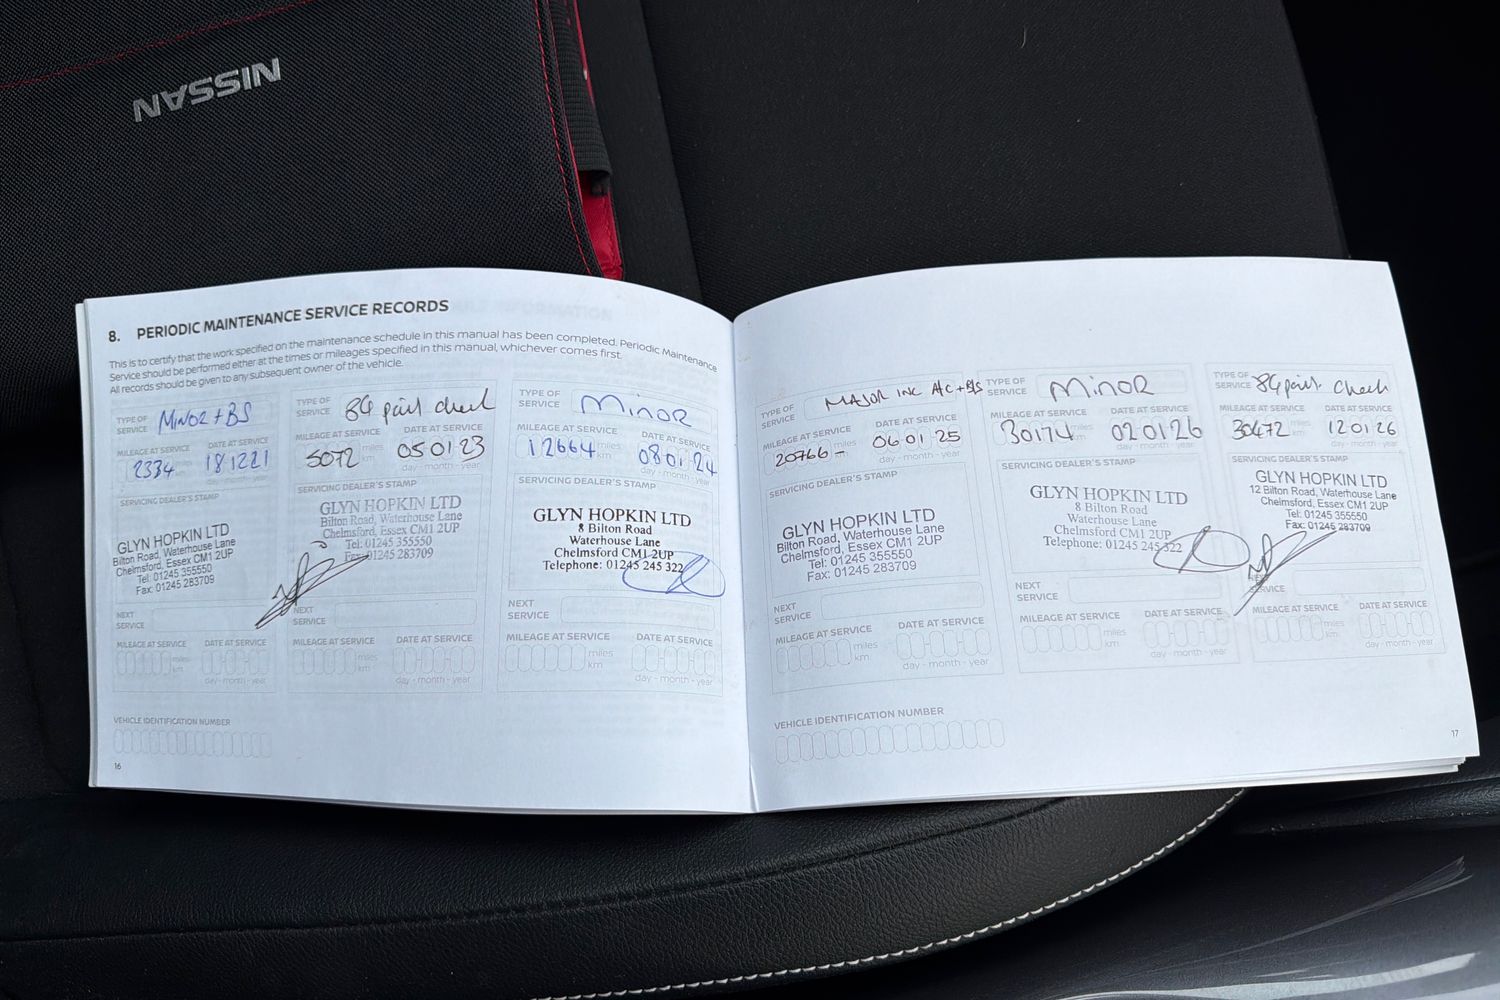 NISSAN
8. PERIODIC MAINTENANCE SERVICE RECORDS
This is to certify that the work specified on the maintenance schedule in this manual has been completed. Periodic Maintenance
Service should be performed either at the times or mileages specified in this manual, whichever comes first.
All records should be given to any subsequent owner of the vehicle.
TYPE OF SERVICE MINOR + BS
MILEAGE AT SERVICE DATE AT SERVICE
2334 miles km 18 12 21
SERVICING DEALER'S STAMP
GLYN HOPKIN LTD
Bilton Road, Waterhouse Lane
Chelmsford, Essex CM1 2UP
Tel: 01245 355550
Fax: 01245 283709
NEXT SERVICE
MILEAGE AT SERVICE DATE AT SERVICE
miles km
day - month - year
TYPE OF SERVICE 84 point check
MILEAGE AT SERVICE DATE AT SERVICE
5072 miles km 05 01 23
day - month - year
SERVICING DEALER'S STAMP
GLYN HOPKIN LTD
Bilton Road, Waterhouse Lane
Chelmsford, Essex CM1 2UP
Tel: 01245 355550
Fax: 01245 283709
NEXT SERVICE
MILEAGE AT SERVICE DATE AT SERVICE
miles km
day - month - year
TYPE OF SERVICE MINOR
MILEAGE AT SERVICE DATE AT SERVICE
12664 miles km 08 01 24
day - month - year
SERVICING DEALER'S STAMP
GLYN HOPKIN LTD
8 Bilton Road
Waterhouse Lane
Chelmsford CM1 2UP
Telephone: 01245 245 322
NEXT SERVICE
MILEAGE AT SERVICE DATE AT SERVICE
miles km
day - month - year
VEHICLE IDENTIFICATION NUMBER
16
TYPE OF SERVICE MAJOR INC A/C + B/S
MILEAGE AT SERVICE DATE AT SERVICE
20766 - miles km 06 01 25
day - month - year
SERVICING DEALER'S STAMP
GLYN HOPKIN LTD
Bilton Road, Waterhouse Lane
Chelmsford, Essex CM1 2UP
Tel: 01245 355550
Fax: 01245 283709
NEXT SERVICE
MILEAGE AT SERVICE DATE AT SERVICE
miles km
day - month - year
TYPE OF SERVICE MINOR
MILEAGE AT SERVICE DATE AT SERVICE
30174 miles km 02 01 26
day - month - year
SERVICING DEALER'S STAMP
GLYN HOPKIN LTD
8 Bilton Road
Waterhouse Lane
Chelmsford CM1 2UP
Telephone: 01245 245 322
NEXT SERVICE
MILEAGE AT SERVICE DATE AT SERVICE
miles km
day - month - year
TYPE OF SERVICE 84 point check
MILEAGE AT SERVICE DATE AT SERVICE
30472 miles km 12 01 26
day - month - year
SERVICING DEALER'S STAMP
GLYN HOPKIN LTD
12 Bilton Road, Waterhouse Lane
Chelmsford, Essex CM1 2UP
Tel: 01245 355550
Fax: 01245 283709
NEXT SERVICE
MILEAGE AT SERVICE DATE AT SERVICE
miles km
day - month - year
VEHICLE IDENTIFICATION NUMBER
17